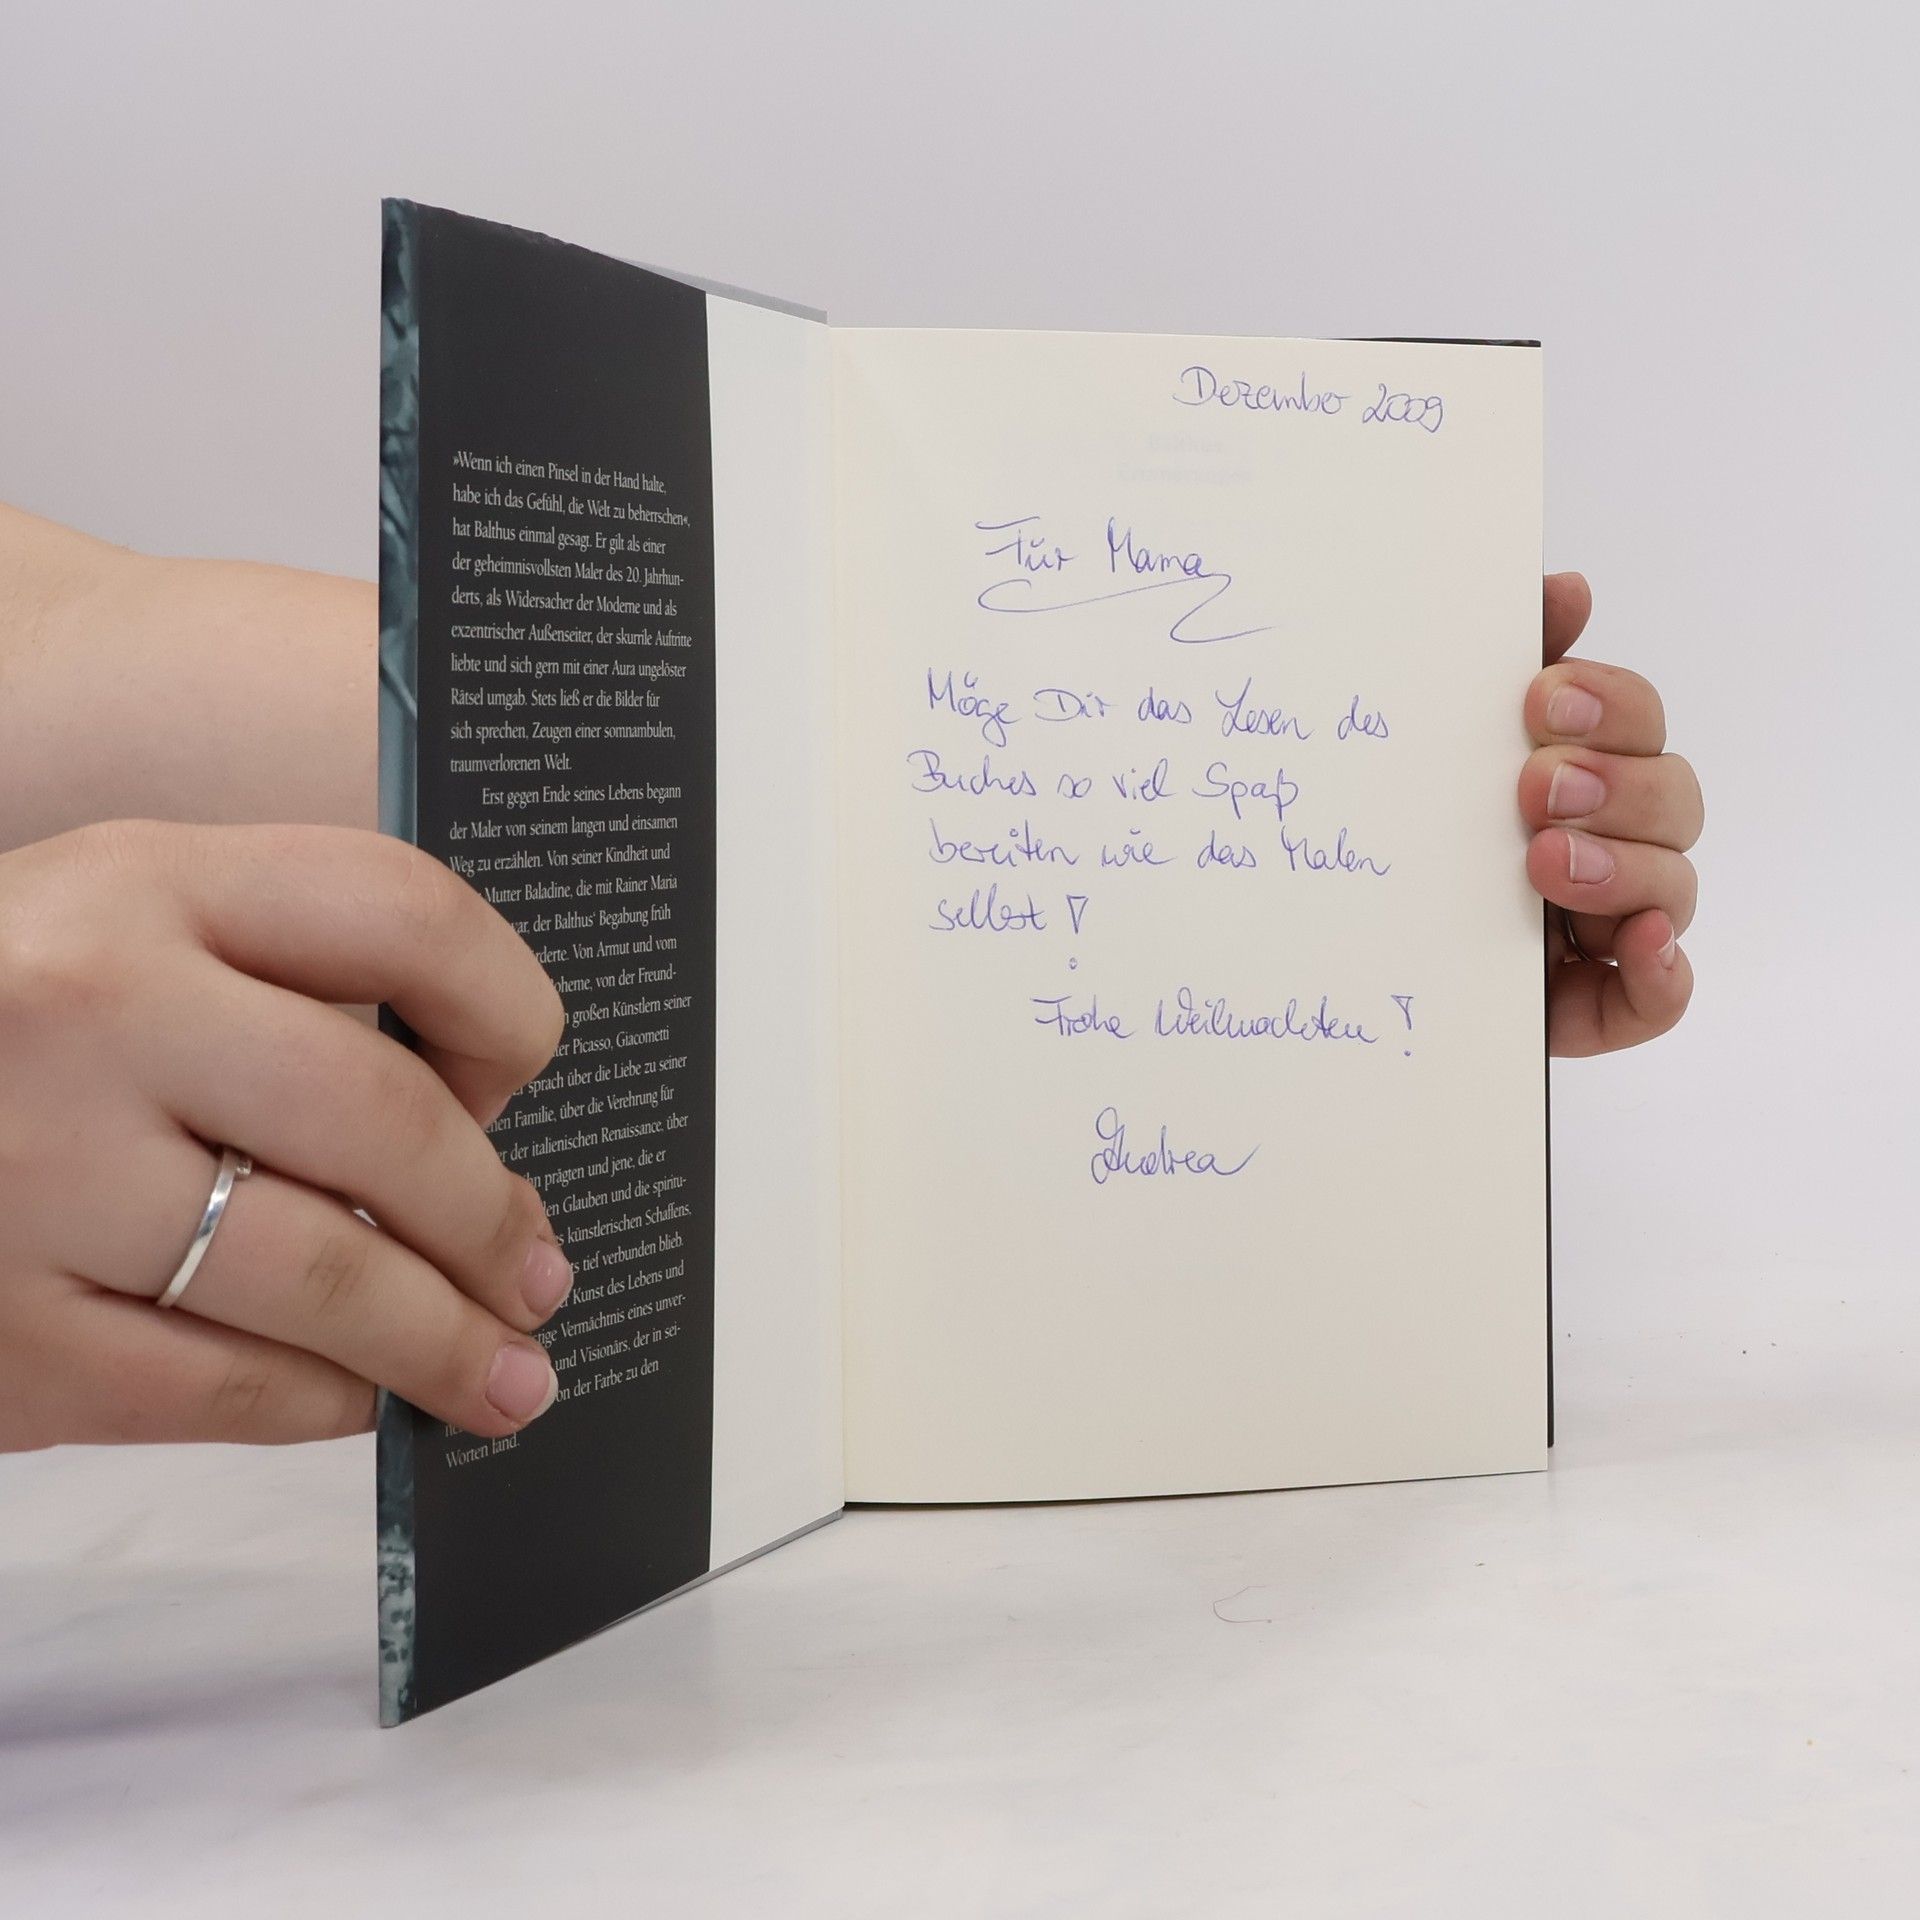 »Wenn ich einen Pinsel in der Hand halte,
habe ich das Gefühl, die Welt zu beherrschen«,
hat Balthus einmal gesagt. Er gilt als einer
der geheimnisvollsten Maler des 20. Jahrhun-
derts, als Widersacher der Moderne und als
exzentrischer Außenseiter, der skurrile Auftritte
liebte und sich gern mit einer Aura ungelöster
Rätsel umgab. Stets ließ er die Bilder für
sich sprechen, Zeugen einer somnambulen,
traumverlorenen Welt.
Erst gegen Ende seines Lebens begann
der Maler von seinem langen und einsamen
Weg zu erzählen. Von seiner Kindheit und
Mutter Baladine, die mit Rainer Maria
der Balthus' Begabung früh
Von Armut und vom
von der Freund-
großen Künstlern seiner
Picasso, Giacometti
sprach über die Liebe zu seiner
Familie, über die Verehrung für
der italienischen Renaissance, über
prägten und jene, die er
Glauben und die spiritu-
künstlerischen Schaffens,
tief verbunden blieb.
Kunst des Lebens und
Vermächtnis eines unver-
und Visionärs, der in sei-
der Farbe zu den
Worten fand.
Dezember 2009
Balthus
Erinnerungen
Für Mama
Möge Dir das Lesen des
Buches so viel Spaß
bereiten wie das Malen
selbst!
Frohe Weihnachten!
Andrea